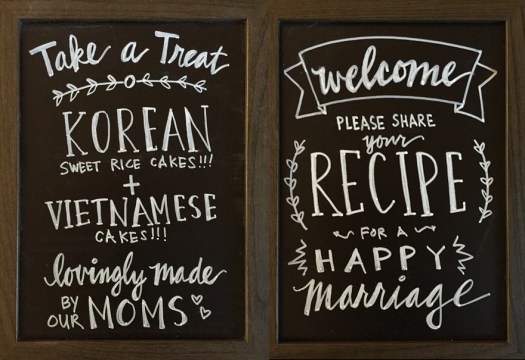 Take a Treat
KOREAN
SWEET RICE CAKES!!!
+
VIETNAMESE
CAKES!!!
lovingly made
BY OUR MOMS
welcome
PLEASE SHARE
your
RECIPE
FOR A
HAPPY
marriage